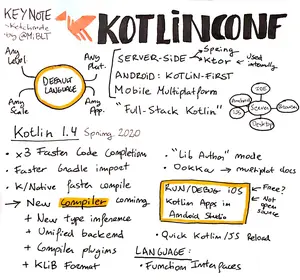 KEYNOTE
sketchnote
by @MiBLT
KOTLINCONF
Any
Level
Any
Plat.
DEFAULT
LANGUAGE
Any
Scale
Any
App.
SERVER-SIDE
Spring
Ktor
Used
internally
ANDROID: KOTLIN-FIRST
Mobile Multiplatform
"Full-Stack Kotlin"
IDE
Android
iOS
Server
Browser
Desktop
Kotlin 1.4 Spring 2020
• x3 Faster Code Completion
• Faster Gradle import
• K/Native faster compile
→ New compiler coming
+ New type inference
+ Unified backend
+ Compiler plugins
+ KLIB Format
• "Lib Author" mode
• Dokka → multiplat docs
RUN/DEBUG iOS
Kotlin Apps in
Android Studio
Free?
Not
open
source
• Quick Kotlin/JS Reload
LANGUAGE:
• Function Interfaces